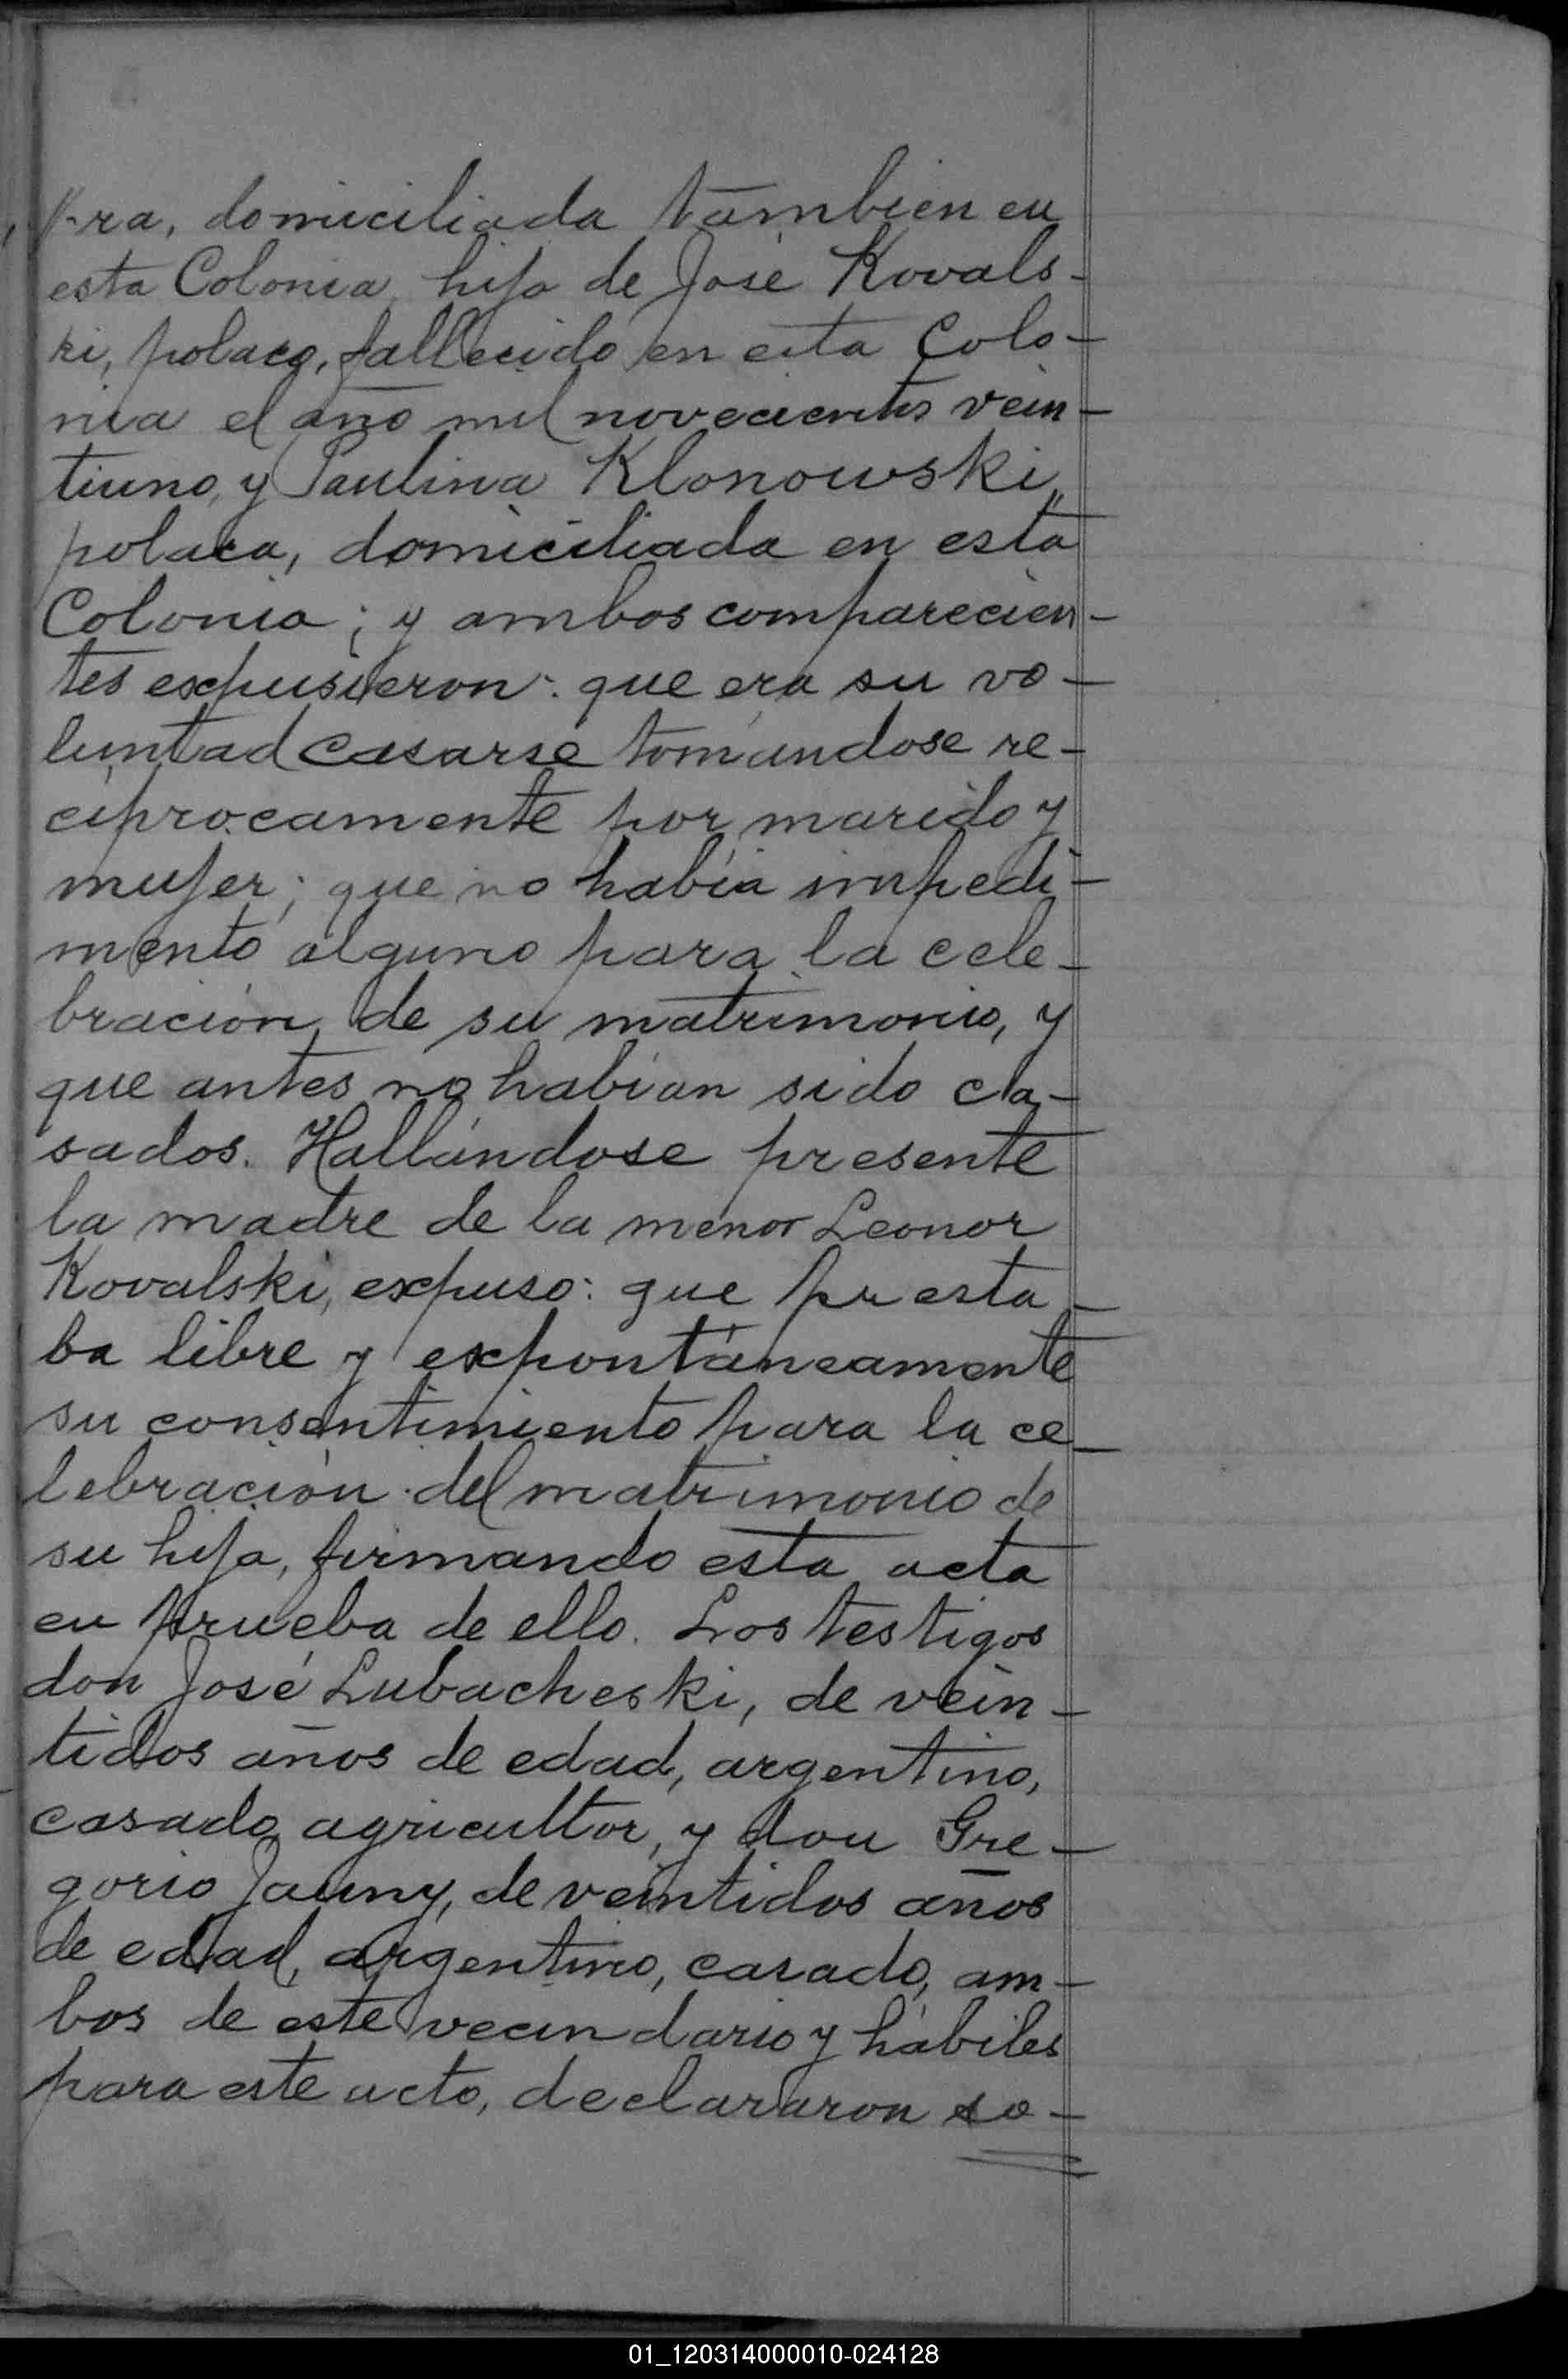 ra, domiciliada tambien en
esta Colonia, hija de José Kovals-
ki, polaco, fallecido en esta Colo-
nia el año mil novecientos vein-
tiuno, y Paulina Klonowski,,
polaca, domiciliada en esta
Colonia; y ambos comparecien-
tes expusieron: que era su vo-
luntad casarse tomándose re-
cíprocamente por marido y
mujer; que no había impedi-
mento alguno para la cele-
bración de su matrimonio, y
que antes no habían sido ca-
sados. Hallándose presente
la madre de la menor Leonor
Kovalski, expuso: que presta-
ba libre y expontáneamente
su consentimiento para la ce-
lebración del matrimonio de
su hija, firmando esta acta
en prueba de ello. Los testigos
don José Lubacheski, de vein-
tidos años de edad, argentino,
casado, agricultor, y don Gre-
gorio Jauny, de veintidos años
de edad, argentino, casado, am-
bos de este vecindario y hábiles
para este acto, declararon so-
01_120314000010-024128